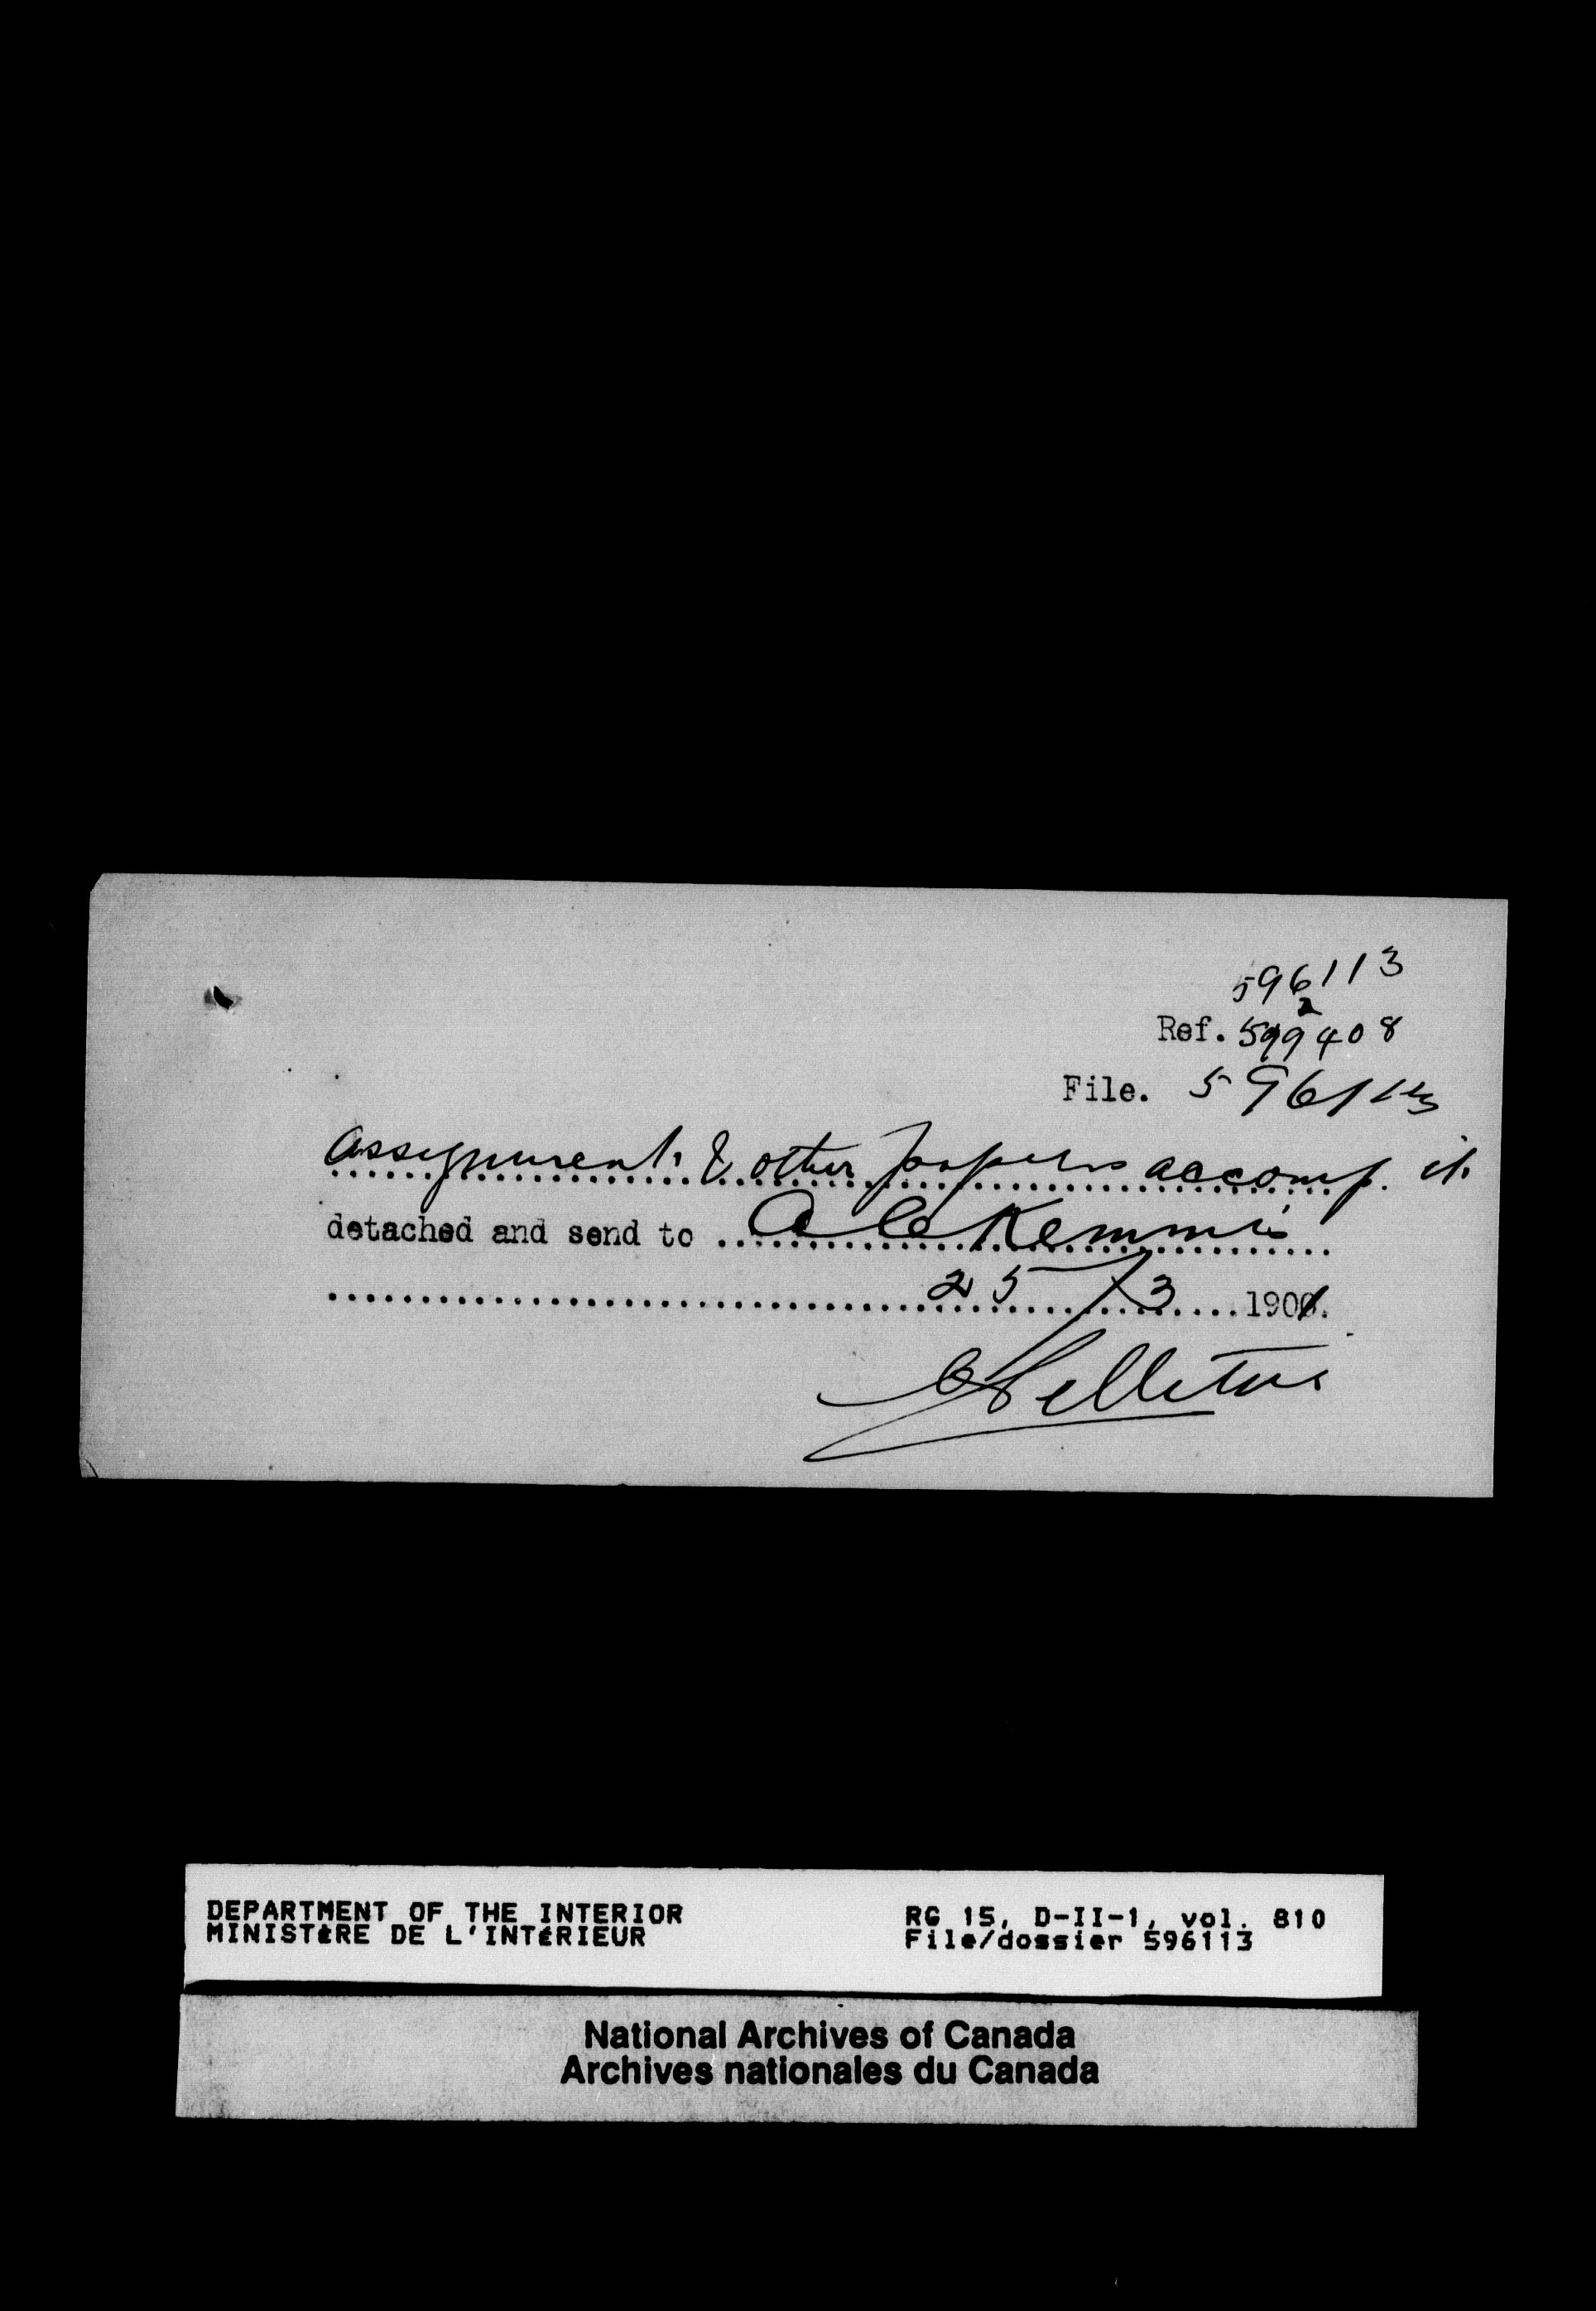 596113
2
Ref. 599408
File. 596113
Assignment & other papers accomp. it
detached and send to A C Kemmis
25/3 1901.
DEPARTMENT OF THE INTERIOR
MINISTÈRE DE L'INTÉRIEUR
RG 15, D-II-1, vol. 810
File/dossier 596113
National Archives of Canada
Archives nationales du Canada